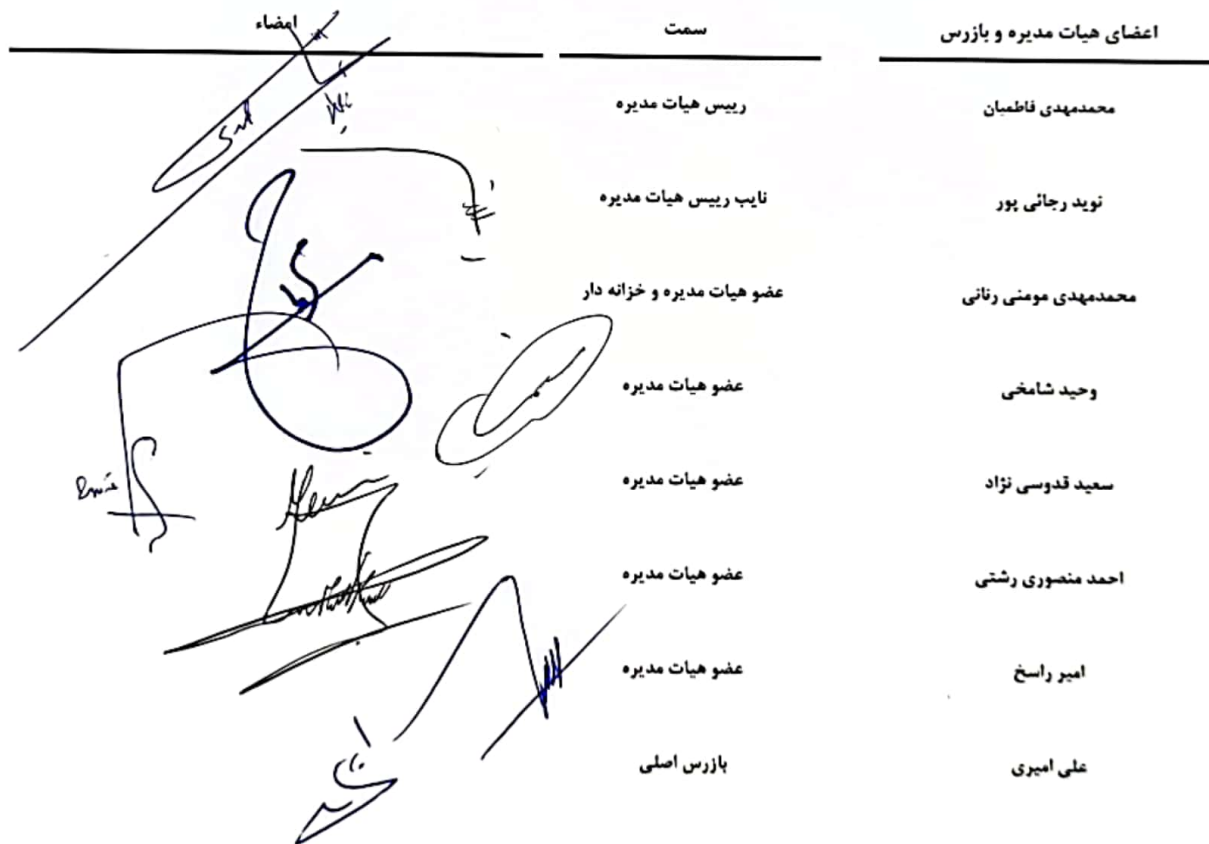 اعضای هیات مدیره و بازرس سمت امضاء
محمدمهدی فاطمیان رییس هیات مدیره
نوید رجائی پور نایب رییس هیات مدیره
محمدمهدی مومنی رنانی عضو هیات مدیره و خزانه دار
وحید شامخی عضو هیات مدیره
سعید قدوسی نژاد عضو هیات مدیره
احمد منصوری رشتی عضو هیات مدیره
امیر راسخ عضو هیات مدیره
علی امیری بازرس اصلی